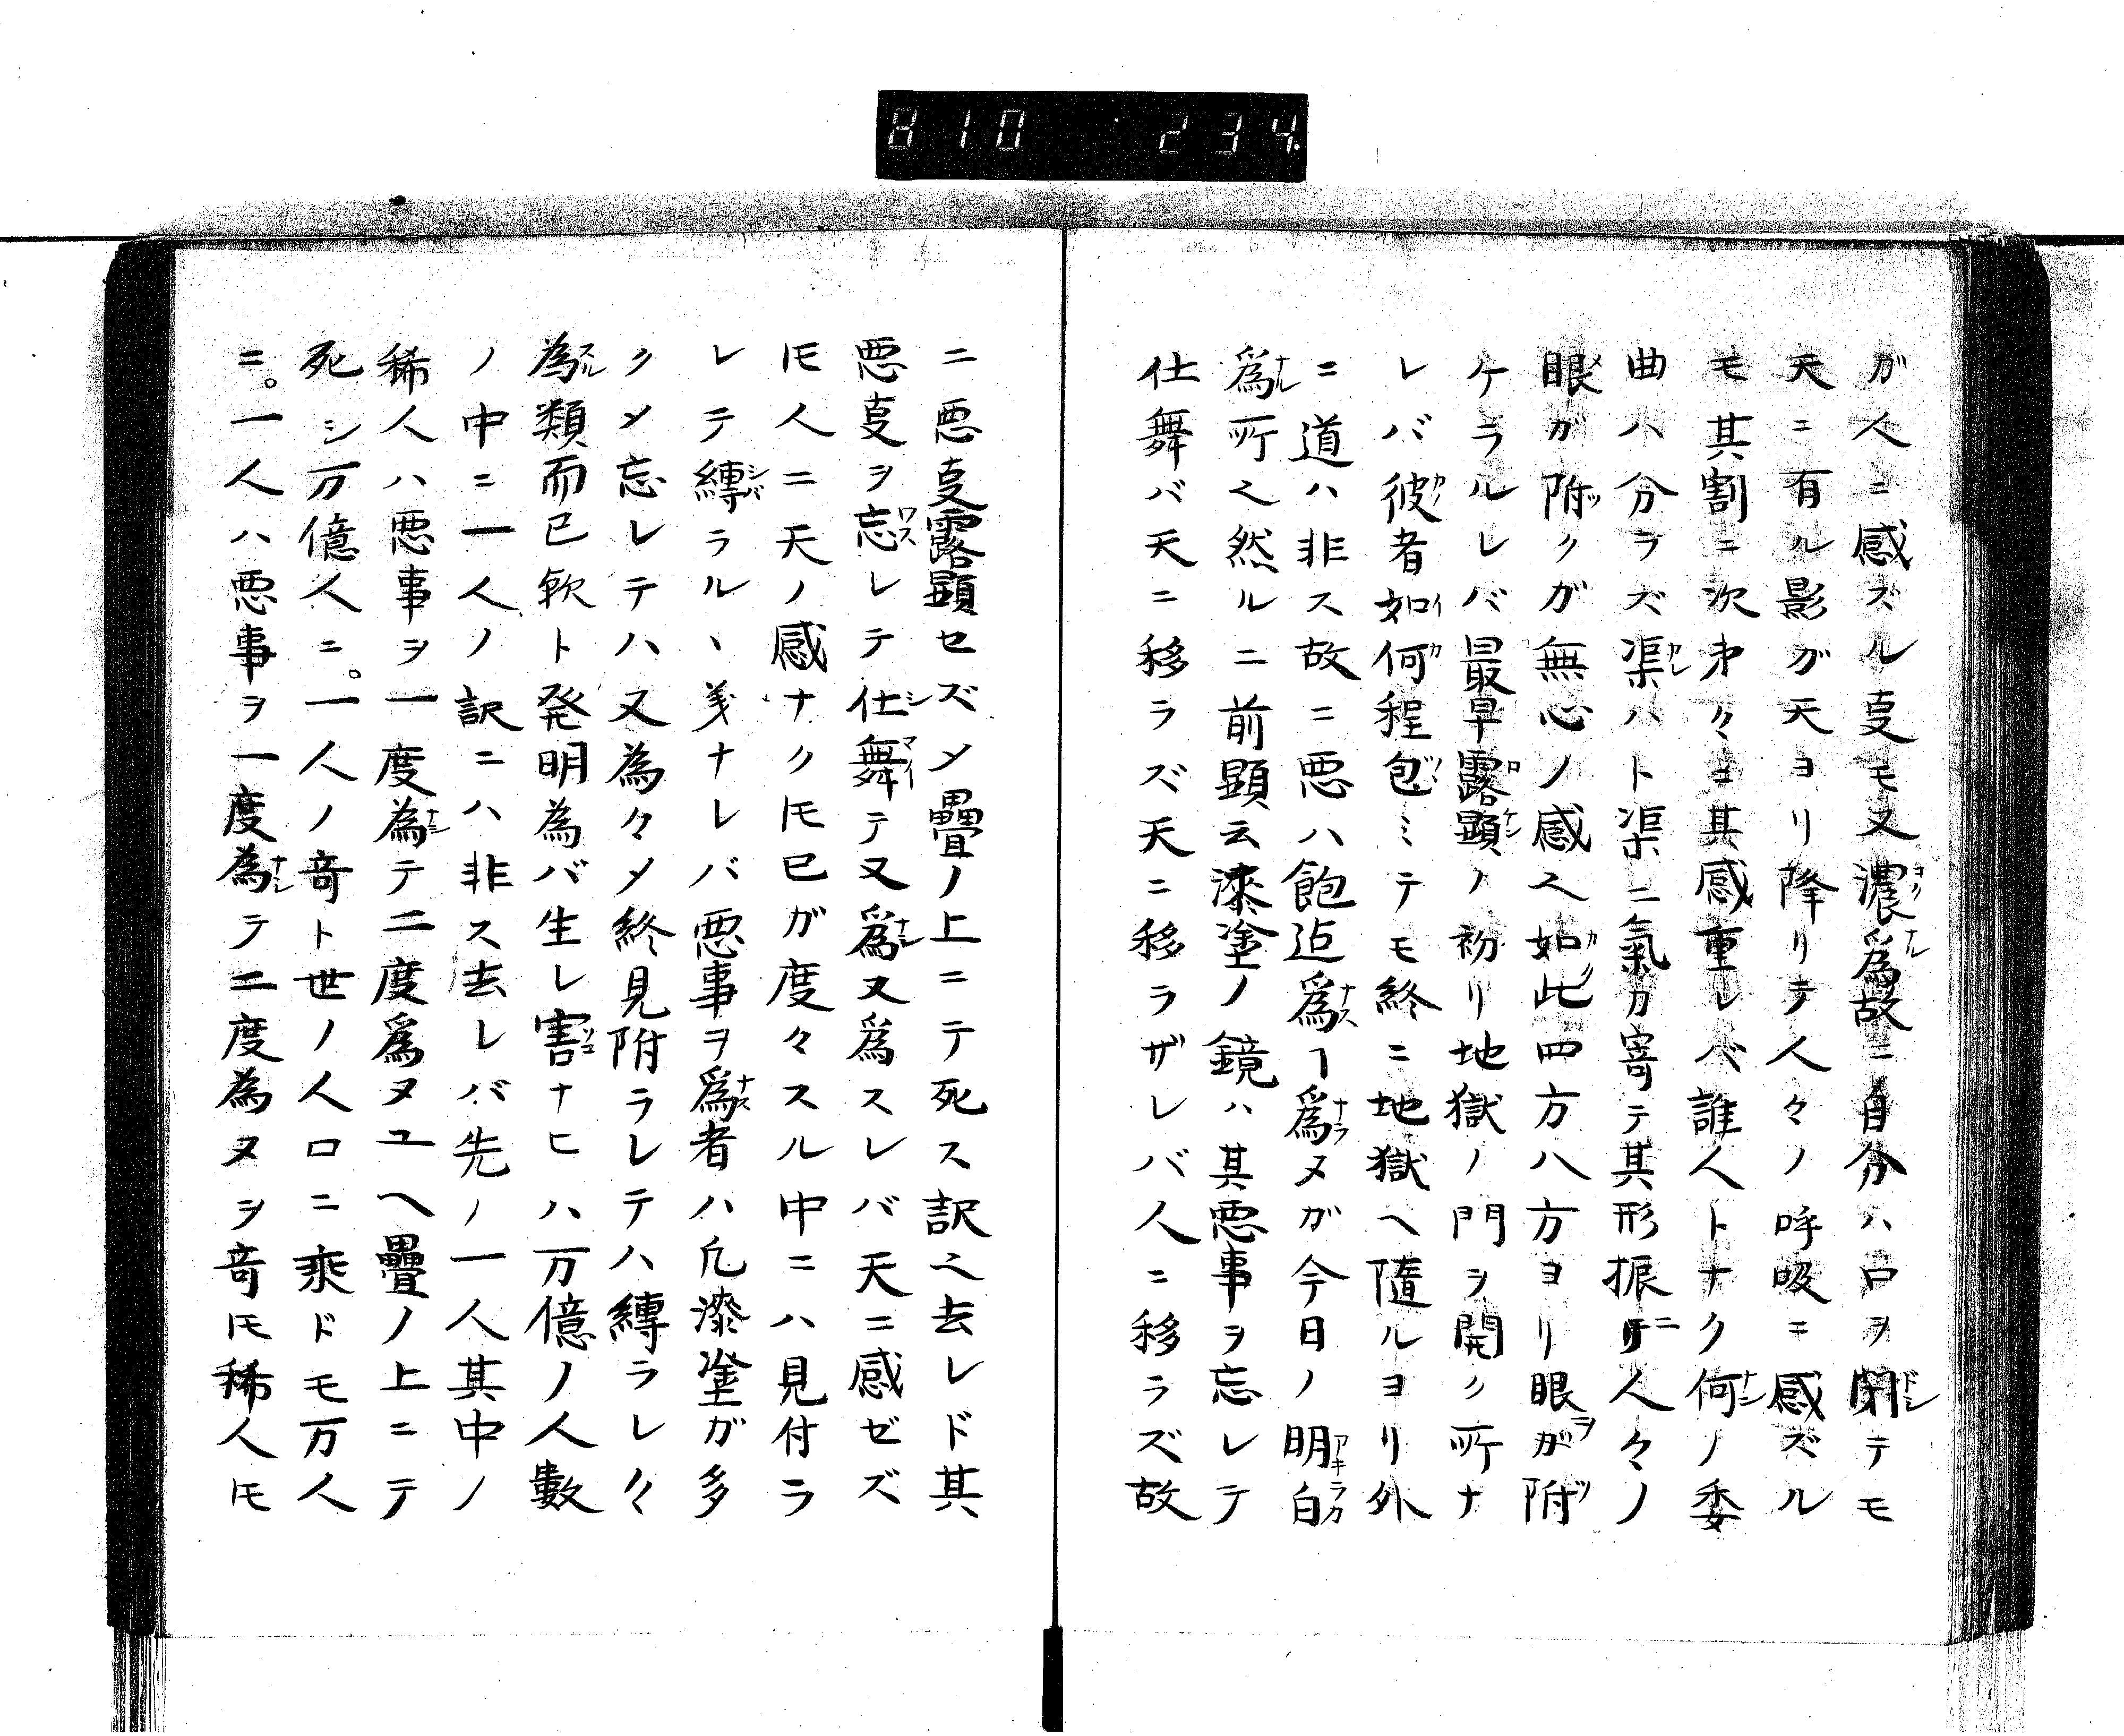 810 234
ガ人ニ感ズル㕝モ又濃爲故ニ自分ハ口ヲ閉テモ
天ニ有ル影ガ天ヨリ降リテ人々ノ呼吸ニ感ズル
モ其割ニ次第々々ニ其感重レバ誰人トナク何ノ委
曲ハ分ラズ渠ハト渠ニ氣カ寄テ其形振ニテ人々ノ
眼ガ附クガ無心ノ感也如此四方八方ヨリ眼ヲガ附
ケラルレバ最早露顕ノ初リ地獄ノ門ヲ開ク所ナ
レバ彼者如何程包ミテモ終ニ地獄ヘ隨ルヨリ外
ニ道ハ非ス故ニ悪ハ飽迄爲ヿ爲ヌガ今日ノ明白
爲所也然ルニ前顕云漆塗ノ鏡ハ其悪事ヲ忘レテ
仕舞バ天ニ移ラズ天ニ移ラザレバ人ニ移ラズ故
ニ悪㕝露顕セズ〆疊ノ上ニテ死ス訳也去レド其
悪㕝ヲ忘レテ仕舞テ又爲又爲スレバ天ニ感ゼズ
𪜈人ニ天ノ感ナク𪜈已ガ度々スル中ニハ見付ラ
レテ縛ラルヽ義ナレバ悪事ヲ爲者ハ凢漆塗ガ多
ク〆忘レテハ又為々〆終見附ラレテハ縛ラレ々
為類而已歟ト発明為バ生レ害ナヒハ万億ノ人數
ノ中ニ一人ノ訳ニハ非ス去レバ先ノ一人其中ノ
稀人ハ悪事ヲ一度為テ二度爲ヌユヘ疊ノ上ニテ
死シ万億人ニ。一人ノ奇ト世ノ人口ニ乘ドモ万人
ニ。一人ハ悪事ヲ一度為テ二度為ヌヲ奇𪜈稀人𪜈